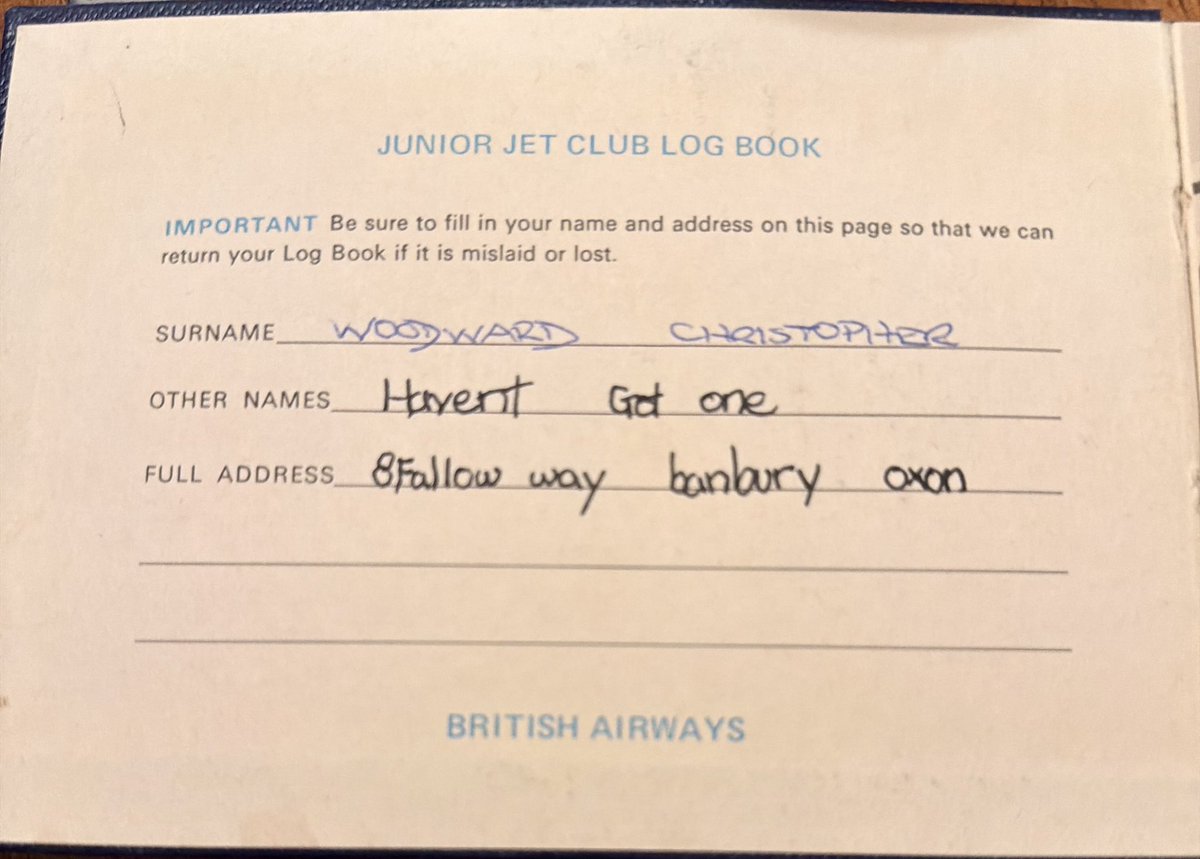 JUNIOR JET CLUB LOG BOOK
IMPORTANT Be sure to fill in your name and address on this page so that we can
return your Log Book if it is mislaid or lost.
SURNAME WOODWARD CHRISTOPHER
OTHER NAMES Havent Got one
FULL ADDRESS 8 Fallow way banbury oxon
BRITISH AIRWAYS